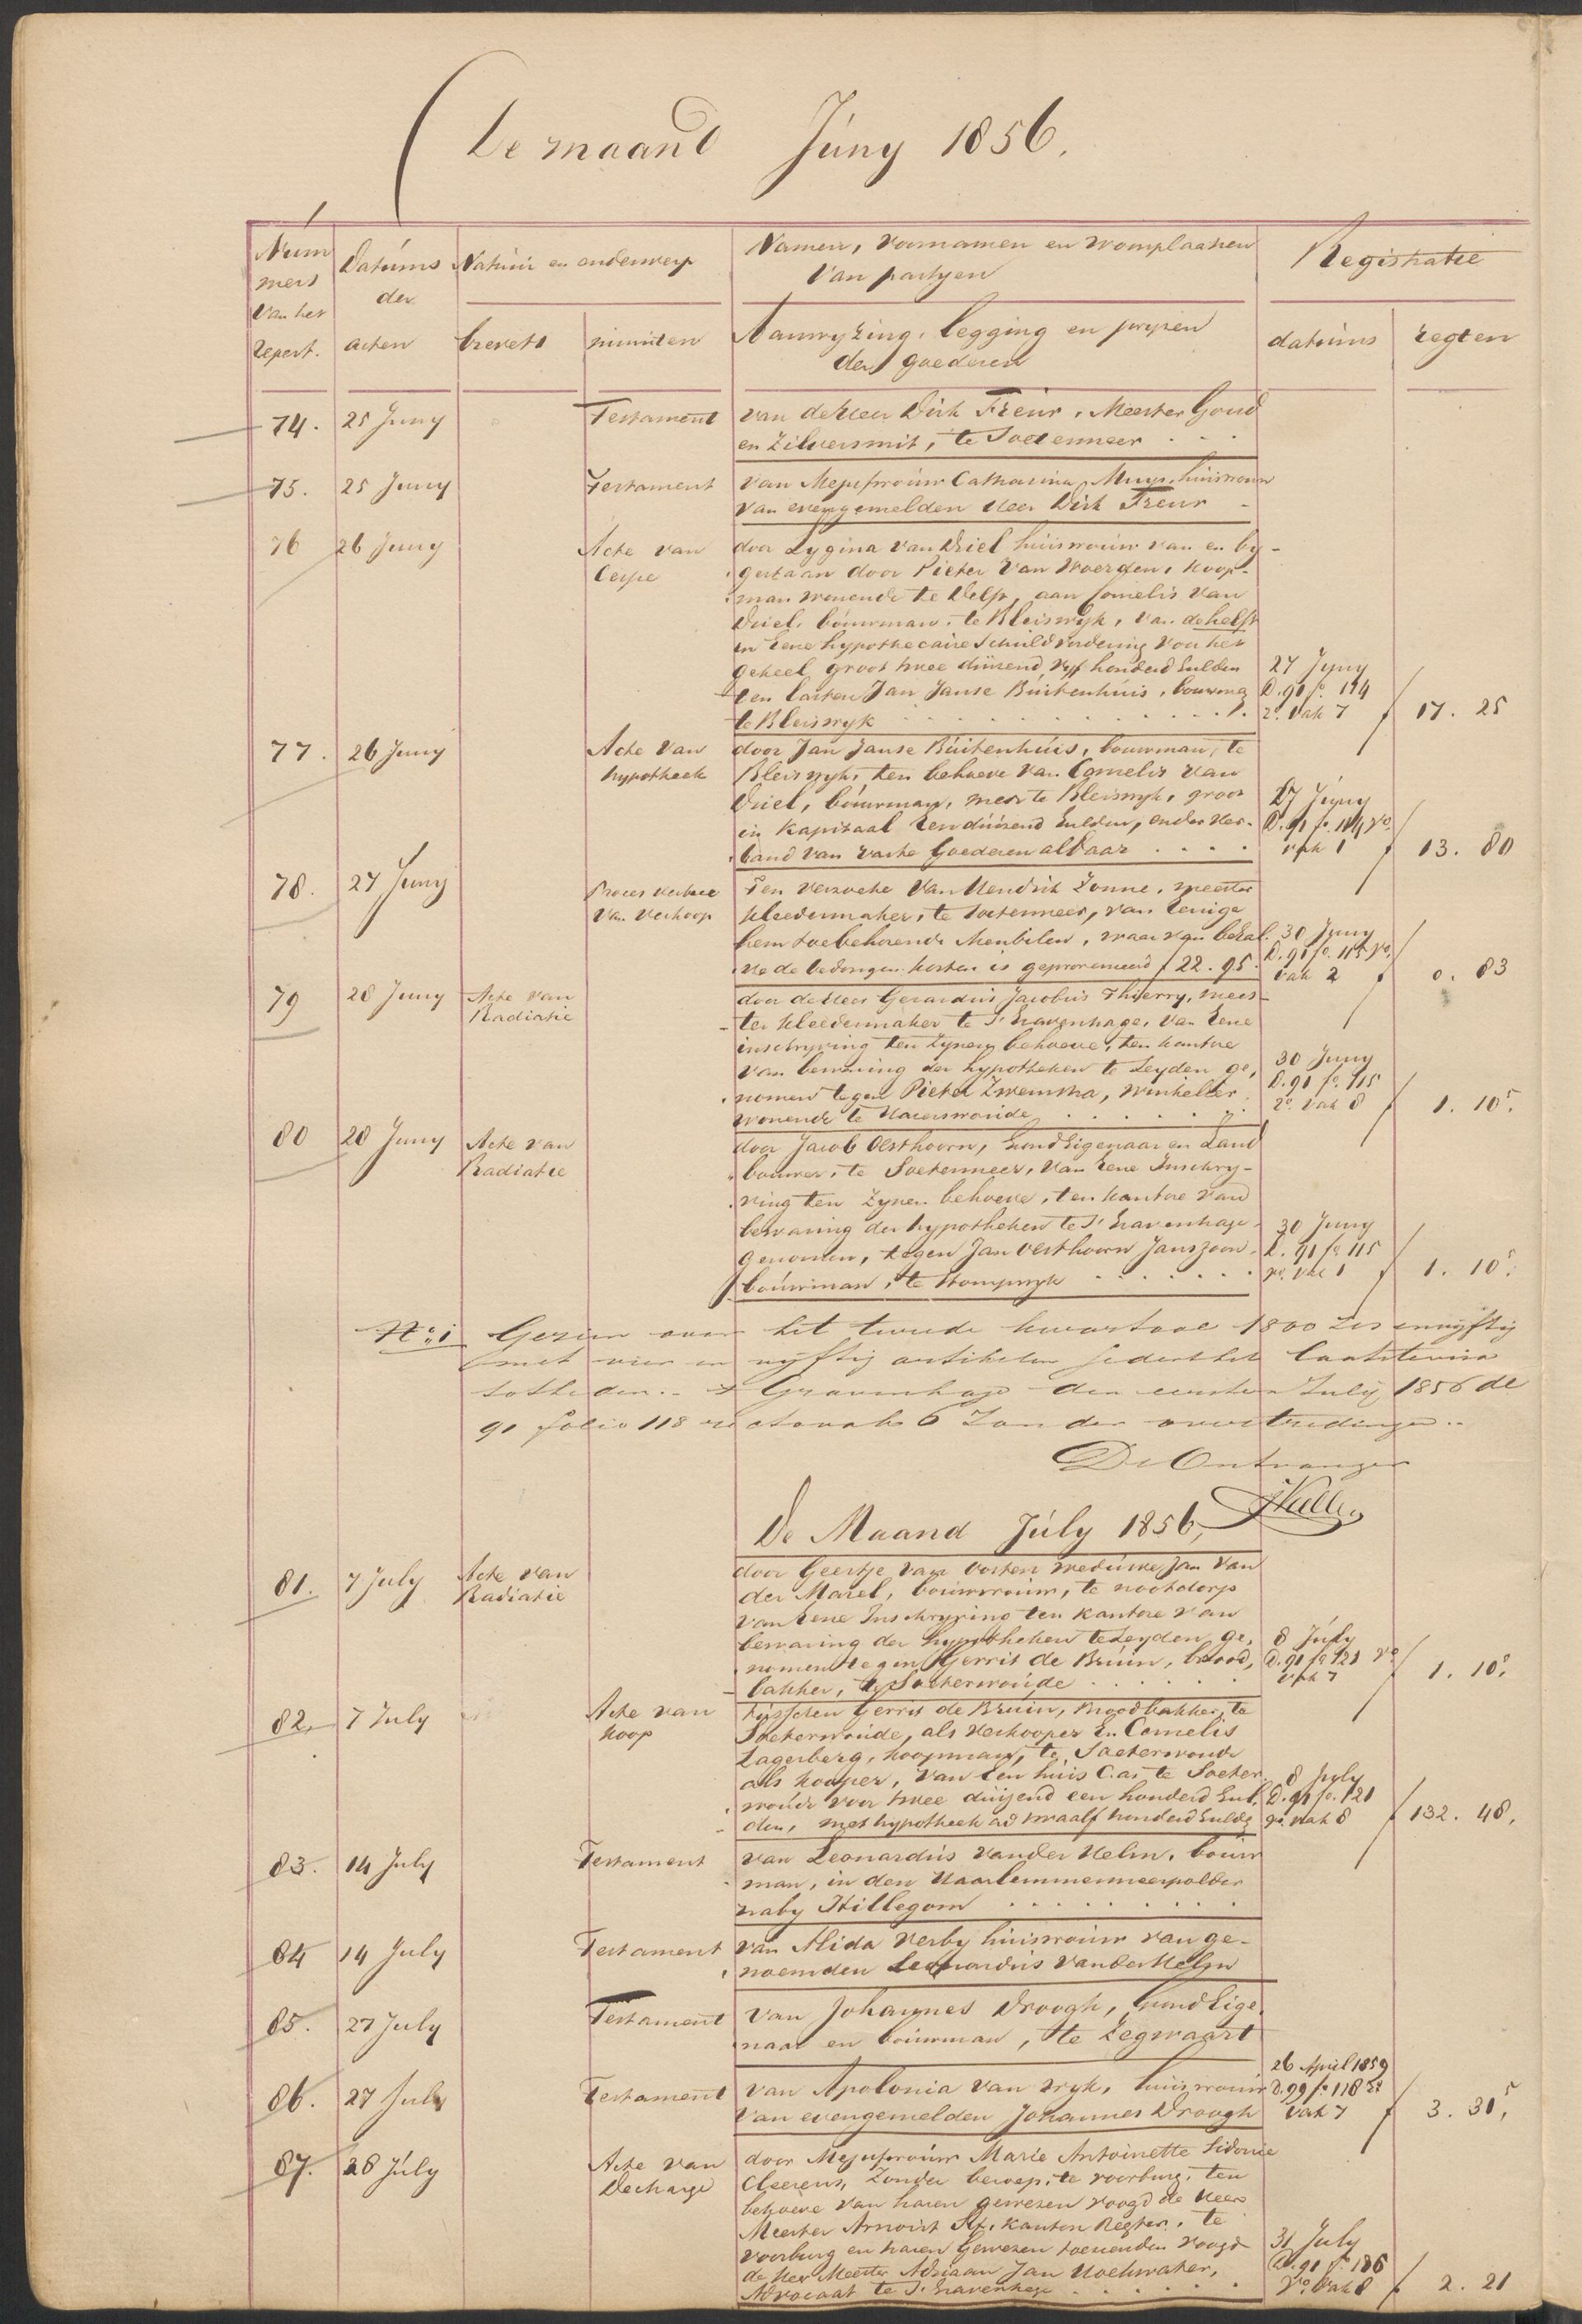 De maand Júny 1856.
Num
mers
van het
repert.
Datúms
der
acten
Natúúr en onderwerp
brevets
minúten
Namen, voornamen en woonplaatsen
van partyen
Aanwyzing, legging en pryzen
der goederen
Registratie
datúms
regten
74. 25 Juny Testament van de Heer Dirk Freur, Meester Goud
en Zilversmit, te Soetermeer . . .
75. 25 Juny Testament van Mejufvroúw Catharina Muys, húisvrouw
van evengemelden Heer Dirk Freur -
76 26 Juny Acte van door Lygina van Driel húisvroúw van en by-
Cessie gestaan door Pieter van Woerden, koop-
man wonende te Delft, aan Cornelis van
Driel, boúwman, te Bleiswyk, van de helft
in Eene hypothecaire Schuldvordering voor het
geheel groot twee dúizend vyf honderd Gulden 27 Juny
ten lasten Jan Janse Búitenhúis, bouwman D. 91 fo. 114
te Bleiswyk . . . . ro. vak 7 f 17. 25
77. 26 Juny Acte van door Jan Janse Búitenhúis, bouwman, te
hypotheek Bleiswyk, ten behoeve van Cornelis van
Driel, boúwman, mede te Bleiswyk, groot 27 Júny
in kapitaal Een dúizend Gulden, onder ver- D. 91 fo. 114 vo.
band van vaste Goederen aldaar . . . . vak 1 f 13. 80
78. 27 Juny Proces verbaal Ten verzoeke van Hendrik Zonne, meester
van verkoop kleedermaker, te Soetermeer, van Eenige
hem toebehorende Meubilen, waarvan behal- 30 Juny
ve de bedongen kosten is geprovenieerd f 22. 95. D. 91 fo. 115 ro.
vak 2 f 0. 83
79 28 Juny Acte van door de Heer Gerardús Jacobús Thierry, mees-
Radiatie ter kleedermaker te S'Gravenhage, van Eene
inschryving ten Zynen behoeve, ten kantore
van bewaring der hypotheken te Leyden ge, 30 Juny
nomen tegen Pieter Zwemstra, winkelier D. 91 fo. 115
wonende te Hazerswoúde . . . . ro. vak 8 f 1. 10⁵.
80 28 Juny Acte van door Jacob Oosthoorn, Grond Eigenaar en Land
Radiatie bouwer, te Soetermeer, van Eene Inschry-
ving ten Zynen behoeve, ten kantore van
bewaring der hypotheken te S'Gravenhage 30 Juny
genomen, tegen Jan Oosthoorn Janszoon, D. 91 fo. 115
boúwman, te Stompwyk . . . . vo. vak 1 f 1. 10⁵.
No. 1 Gezien over het tweede kwartaal 1800 zes en vyftig
met vier en vyftig artikelen sedert het laatste visa
tot heden. - 's Gravenhage den eersten July 1856 de
91 folio 118 recto vak 6 Zonder overtredingen. -
De Ontvanger
De Maand Júly 1856,
81. 7 July Acte van door Geertje van Oosten wedúwe Jan van
Radiatie der Marel, bouwvrouw, te nootdorp
van Eene Inschryving ten kantore van
bewaring der hypotheken te Leyden ge, 8 Júly
nomen tegen Gerrit de Brúin, brood, D. 91 fo. 121 ro
bakker, te Soeterwoúde . . . . vak 7 f 1. 10⁵.
82. 7 July Acte van tússchen Gerrit de Bruin, Broodbakker, te
koop Soeterwoúde, als verkooper En Cornelis
Lagerberg, koopman, te Soeterwoude
als kooper, van Een húis C. as. te Soeter- 8 July
woúde voor twee dúizend een honderd Gul- D. 91 fo. 121
den, met hypotheek ad twaalf honderd Gulden ro. vak 8 f 132. 48,
83. 14 July Testament van Leonardús van der Helm, boúw
man, in den Haarlemmermeerpolder
naby Hillegom . . . .
84 14 July Testament van Alida Verby húisvroúw van ge-
noemden Leonardús van der Helm
85. 27 July Testament van Johannes Droogh, Grond Eige,
naar en boúwman, te Zegwaart
86. 27 July Testament van Apolonia van Wyk, húisvroúw
van evengemelden Johannes Droogh
26 April 1859
D. 99 fo. 118 ro
vak 7 f 3. 31⁵.
87. 28 Júly Acte van door Mejufvroúw Marie Antoinette Sidonie
Decharge Cleerens, Zonder beroep, te voorburg, ten
behoeve van haren gewezen voogd de Heer
Meester Arnoút , kanton Regter, te
Voorburg en haren Gewezen toezienden voogd 31 July
de Heer Meester Adriaan Jan Hoekwater, D. 91 fo. 136
Advocaat te S'Gravenhage . . . . ro. vak 8 f 2. 21